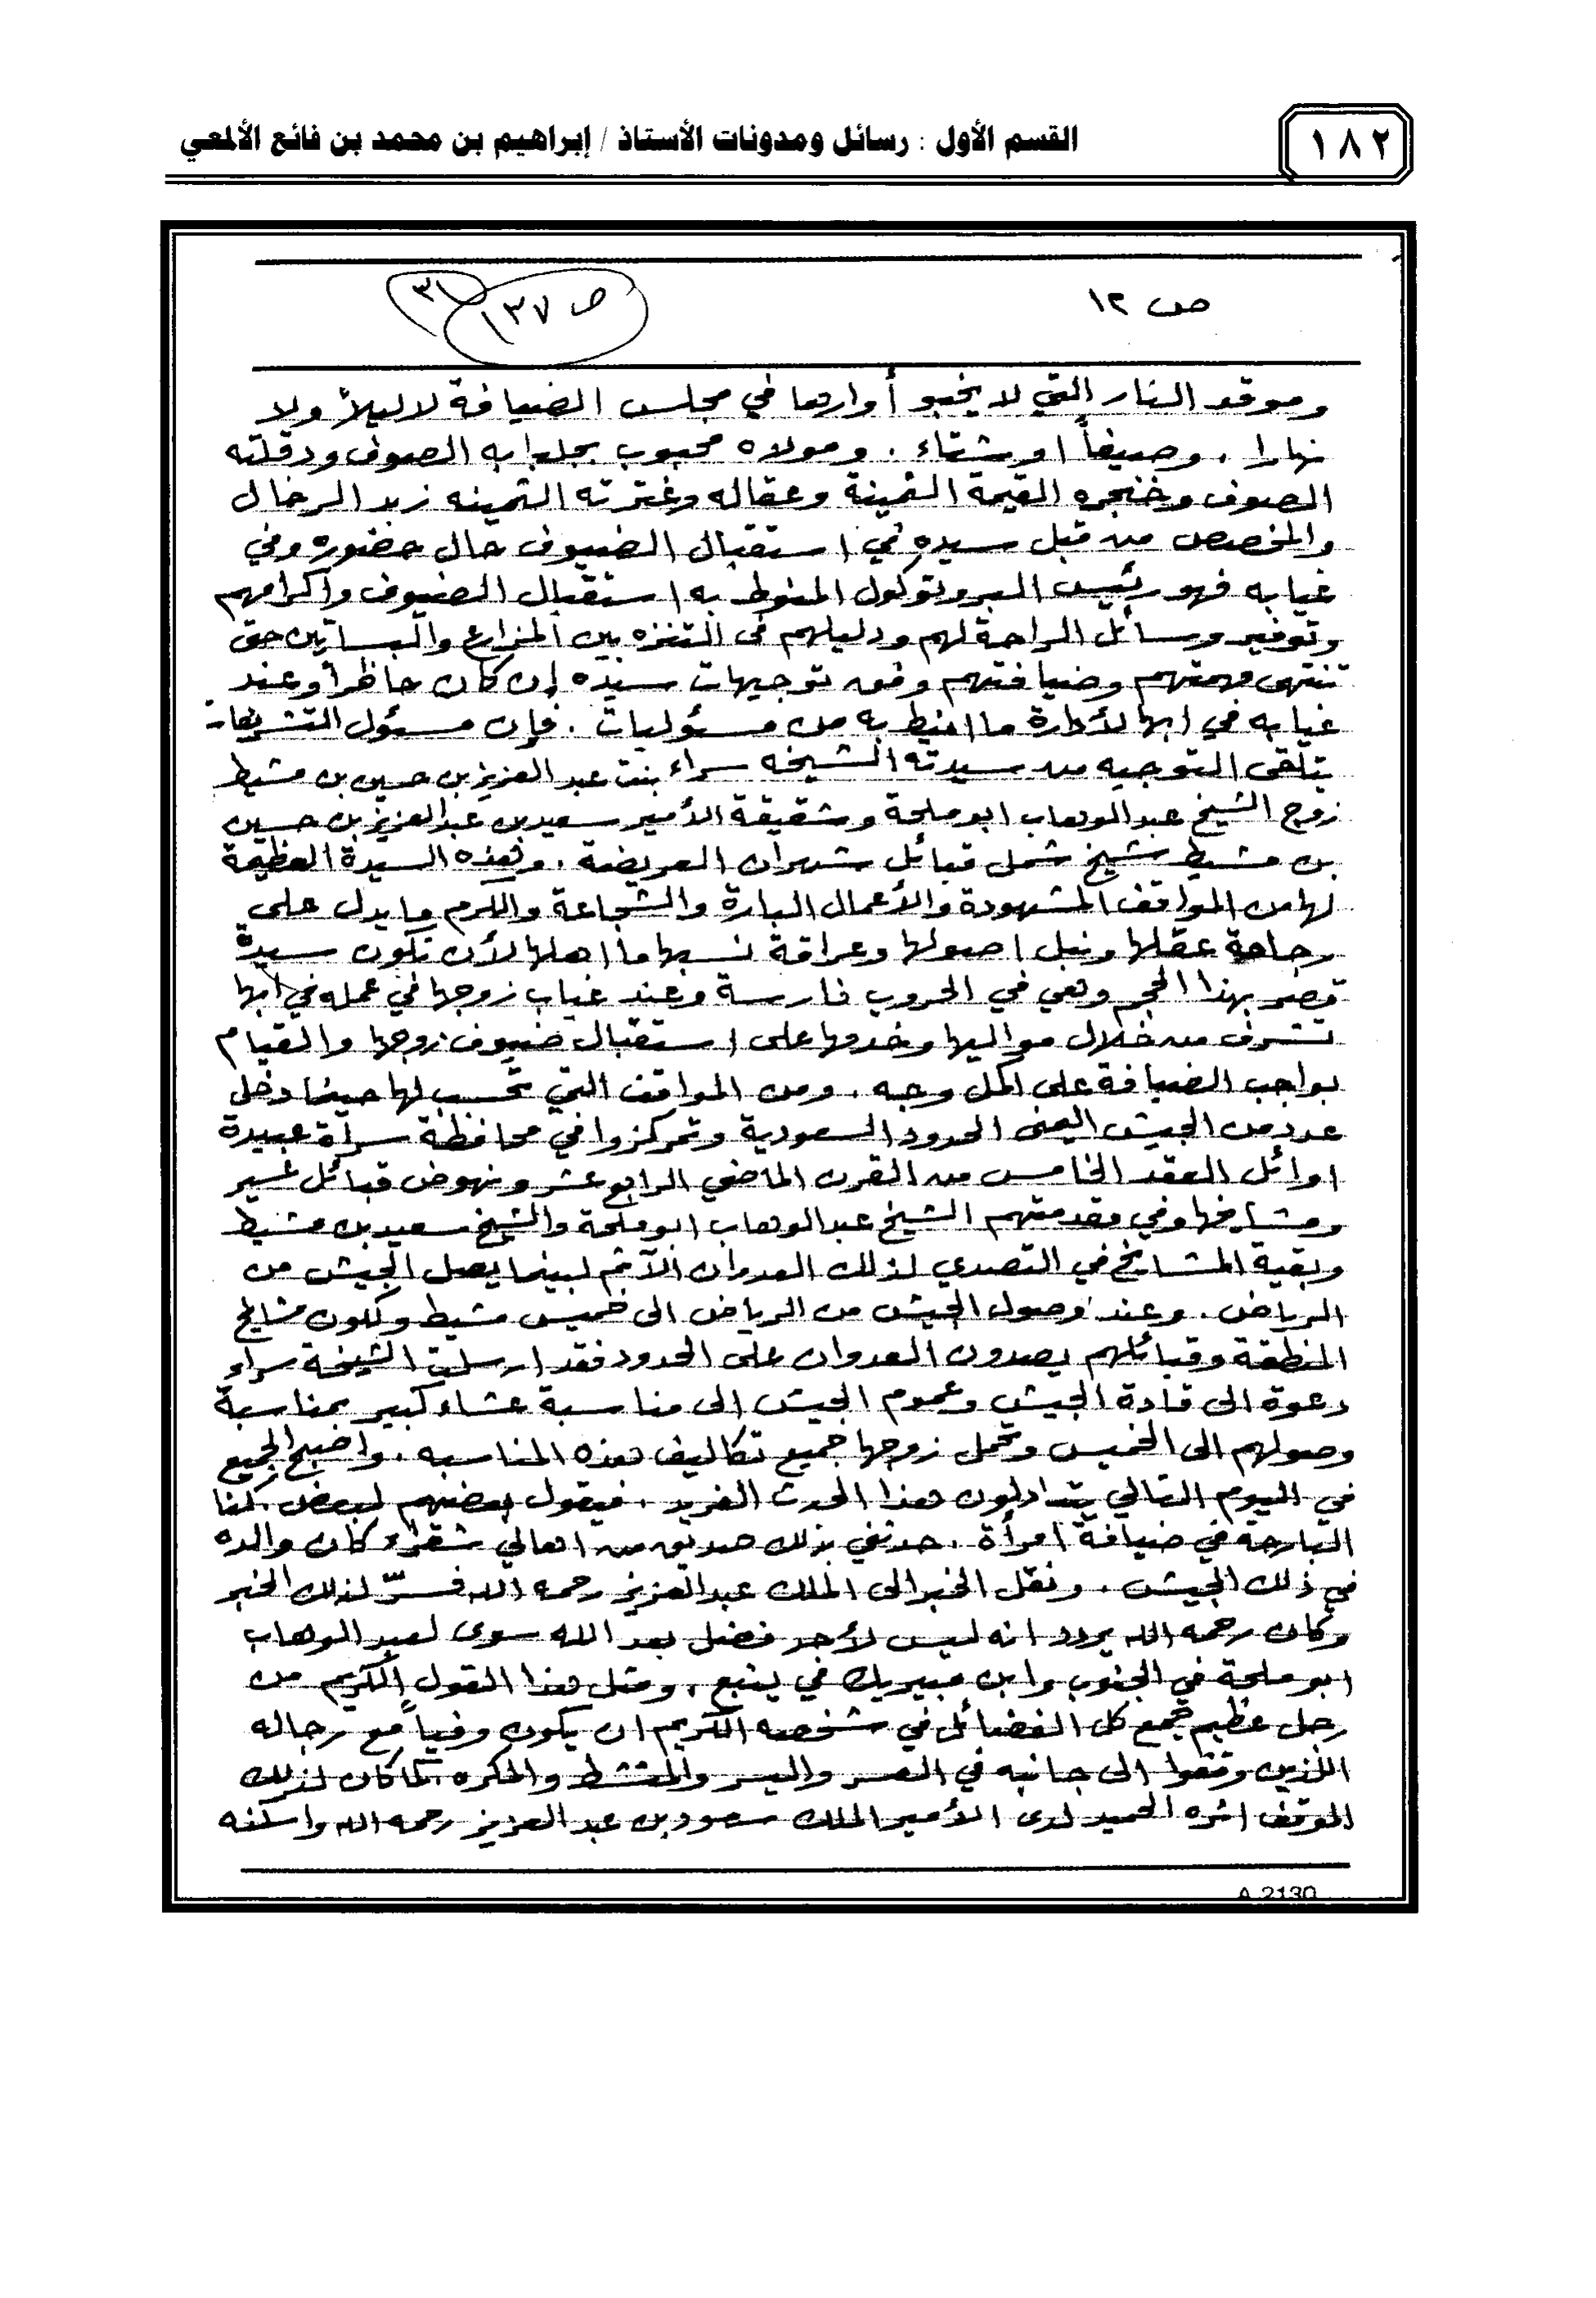 ١٨٢
القسم الأول : رسائل ومدونات الأستاذ / إبراهيم بن محمد بن فائع الألمعي
ص ١٢
ص ١٣٧
٣١
وموقد النار التي لا يخبو أوارها في مجلس الضيافة لا ليلاً ولا
نهارا ، وصيفاً او شتاء . ومولاه محبوب بجلبابه الصوف ودقلته
الصوف وخنجره القيمة الثمينة وعقاله وغترته الثمينه زبد الرخال
والمخصص من قبل سيده في استقبال الضيوف حال حضوره وفي
غيابه فهو رئيس البروتوكول المنوط به استقبال الضيوف واكرامهم
وتوفير وسائل الراحة لهم ودليلهم في التنزه بين المزارع والبساتين حتى
تنتهى مهمتهم وضيافتهم وفق توجيهات سيده إن كان حاظراً وعند
غيابه في ابها لأدارة ما انيط به من مسئوليات . فإن مسئول التشريفات
يتلقى التوجيه من سيدته الشيخه سراء بنت عبد العزيز بن حسين بن مشيط
زوج الشيخ عبد الوهاب ابو ملحة وشقيقة الأمير سعيد بن عبد العزيز بن حسين
بن مشيط شيخ شمل قبائل شهران العريضة . وهذه السيدة العظيمة
لها من المواقف المشهودة والأعمال البارة والشجاعة والكرم ما يدل على
رجاحة عقلها ونبل اصولها وعراقة نسبها ما اهلها لأن تكون سيدة
قصر بهذا الحجم وهي في الحروب فارسة وعند غياب زوجها في عمله في ابها
تشرف من خلال مواليها وخدمها على استقبال ضيوف زوجها والقيام
بواجب الضيافة على اكمل وجه . ومن المواقف التي تحسب لها حينما دخل
عدد من الجيش اليمنى الحدود السعودية وتمركزوا في محافظة سراة عبيدة
اوائل العقد الخامس من القرن الماضي الرابع عشر ونهوض قبائل عسير
ومشايخها وفي مقدمتهم الشيخ عبد الوهاب ابو ملحة والشيخ سعيد بن مشيط
وبقية المشائخ في التصدي لذلك العدوان الآثم لبينما يصل الجيش من
الرياض . وعند وصول الجيش من الرياض الى خميس مشيط وكون مشايخ
المنطقة وقبائلهم يصدون العدوان على الحدود فقد ارسلت الشيخة سراء
دعوة الى قادة الجيش وعموم الجيش الى مناسبة عشاء كبير بمناسبة
وصولهم الى الخميس وتحمل زوجها جميع تكاليف هذه المناسبه . واضبح الجميع
في اليوم التالي يتداولون هذا الحدث الفريد . فيقول بعضهم لبعض كنا
البارحة في ضيافة امرأة . حدثني بذلك صديق من اهالي شقراء كان والده
في ذلك الجيش . ونقل الخبر الى الملك عبد العزيز رحمه الله فسرّ لذلك الخبر
وكان رحمه الله يردد انه ليس لأحد فضل بعد الله سوى لعبد الوهاب
ابو ملحة في الجنوب وابن مبيريك في ينبع ، ومثل هذا القول الكريم من
رجل عظيم تجمع كل الفضائل في شخصه الكريم ان يكون وفياً مع رجاله
اللذين وقفوا الى جانبه في العسر واليسر والمنشط والمكره . كما كان لذلك
الموقف اثره الحميد لدى الأمير الملك سعود بن عبد العزيز رحمه الله واسكنه
A 2130